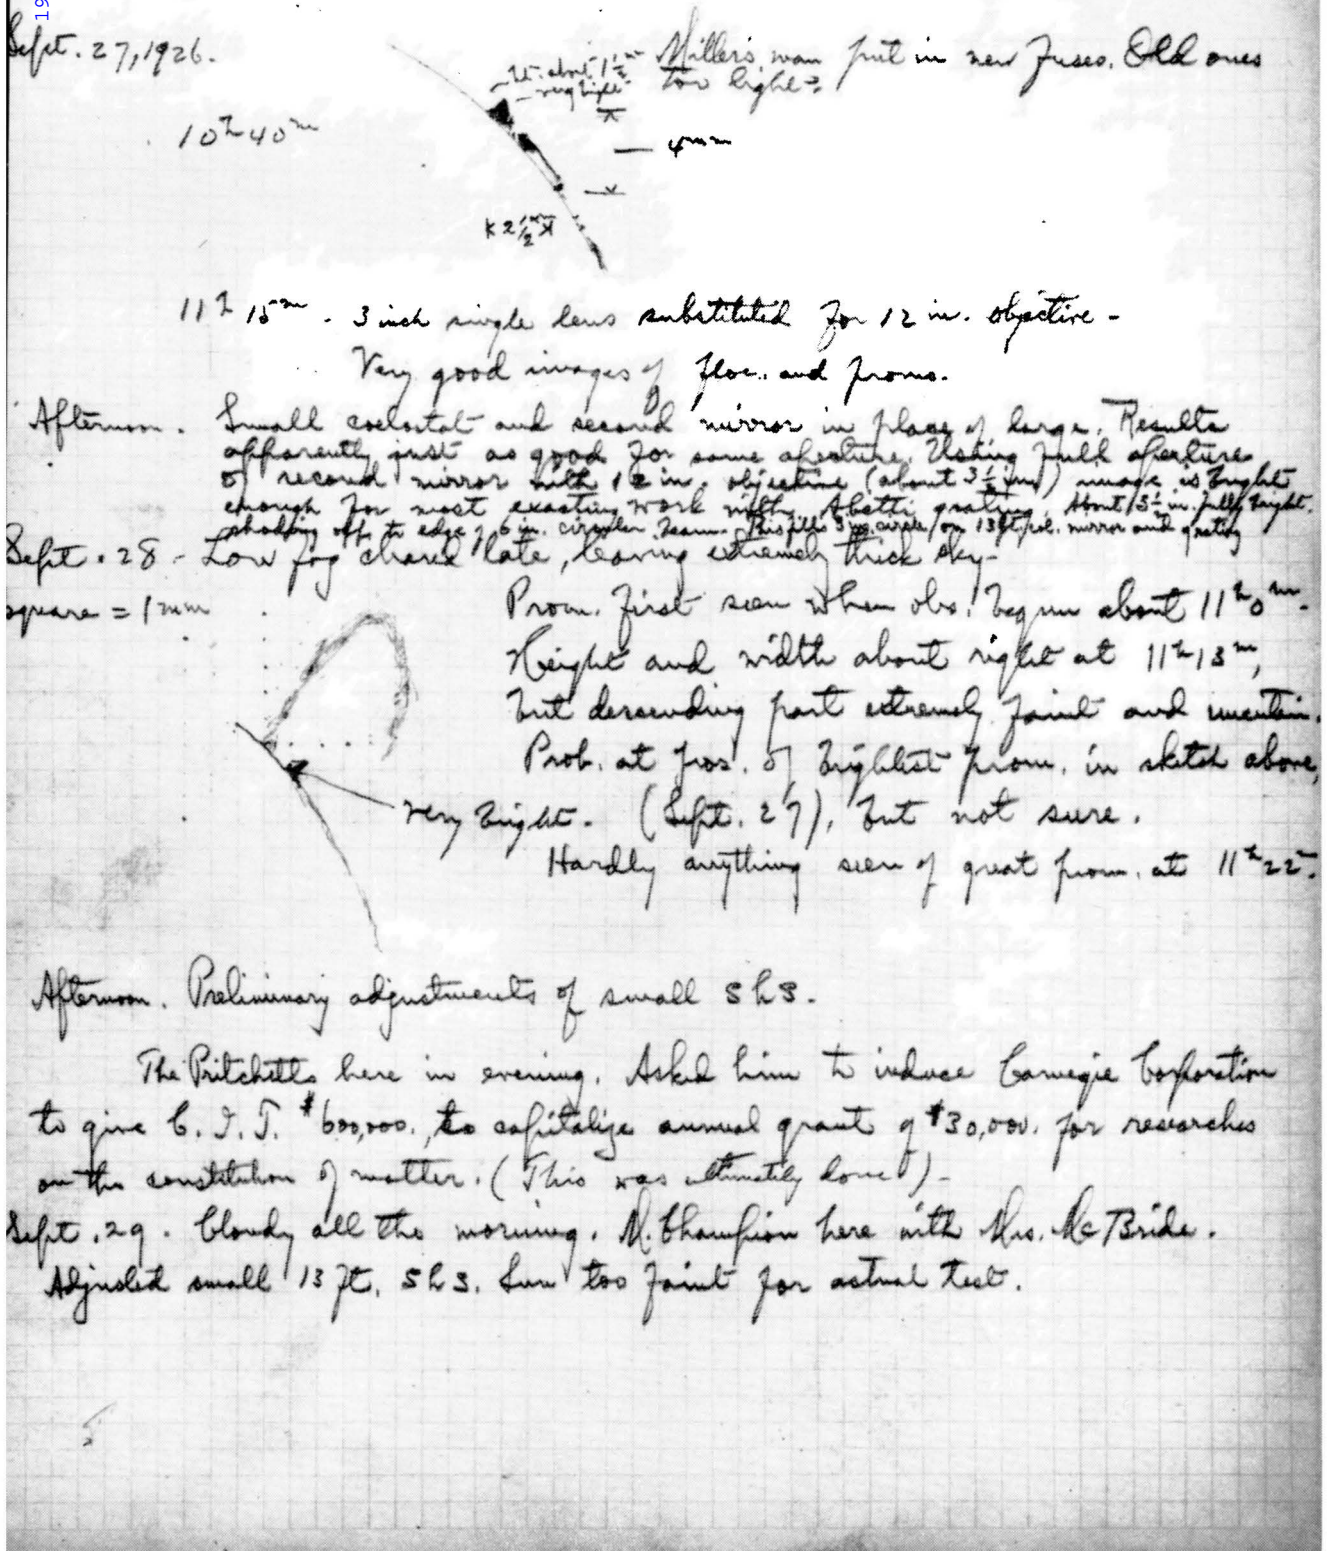 19
Sept. 27, 1926.
Ht. about 1 1/2 mm
very bright
Miller's man put in new fuses. Old ones
too light.
10h 40m
4mm
2 1/2 mm
11h 15m. 3 inch single lens substituted for 12 in. objective -
Very good images of floc. and proms.
Afternoon. Small coelostat and second mirror in place of large. Results
apparently just as good for same aperture. Using full aperture
of second mirror with 12 in. objective (about 3 1/2 in) image is bright
enough for most exacting work with Abetti grating. About 1 3 1/2 in. fully bright,
shading off to edge of 6 in. circular beam. This fills 3 in. circle on 13 ft col. mirror and grating
Sept. 28 - Low fog cleared late, leaving extremely thick sky -
square = 1 mm
Prom. first seen when obs. begun about 11h 0m.
Height and width about right at 11h 13m,
but descending part extremely faint and uncertain.
Prob. at pos. of brightest prom. in sketch above,
very bright.
(Sept. 27), but not sure.
Hardly anything seen of great prom. at 11h 22m.
Afternoon. Preliminary adjustments of small shs.
The Pritchetts here in evening. Asked him to induce Carnegie Corporation
to give C.I.T. $600,000. to capitalize annual grant of $30,000. for researches
on the constitution of matter. (This was ultimately done) -
Sept. 29. Cloudy all the morning. M. Champion here with Mrs. McBride.
Adjusted small 13 ft. shs. Sun too faint for actual test.